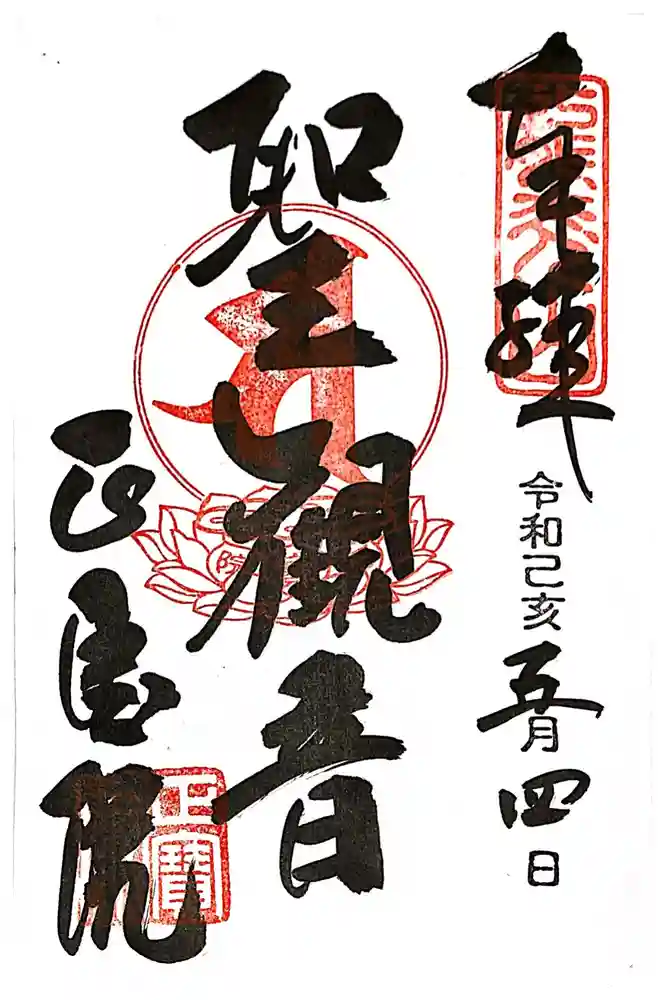 奉拝
令和己亥五月四日
聖観音
正寳院
正寳